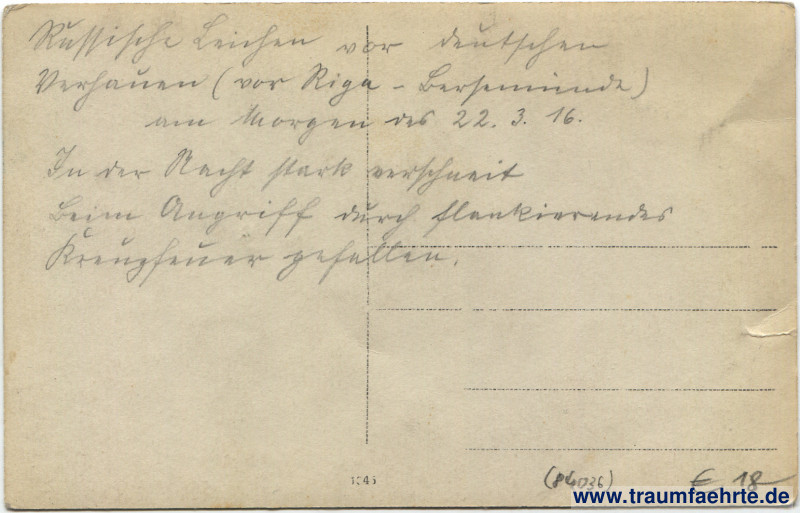 Russische Leichen vor deutschen
Verhauen (vor Riga - Bersemünde)
am Morgen des 22. 3. 16.
In der Nacht stark verschneit
Beim Angriff durch flankierendes
Kreuzfeuer gefallen.
(84036)
€ 18
www.traumfaehrte.de